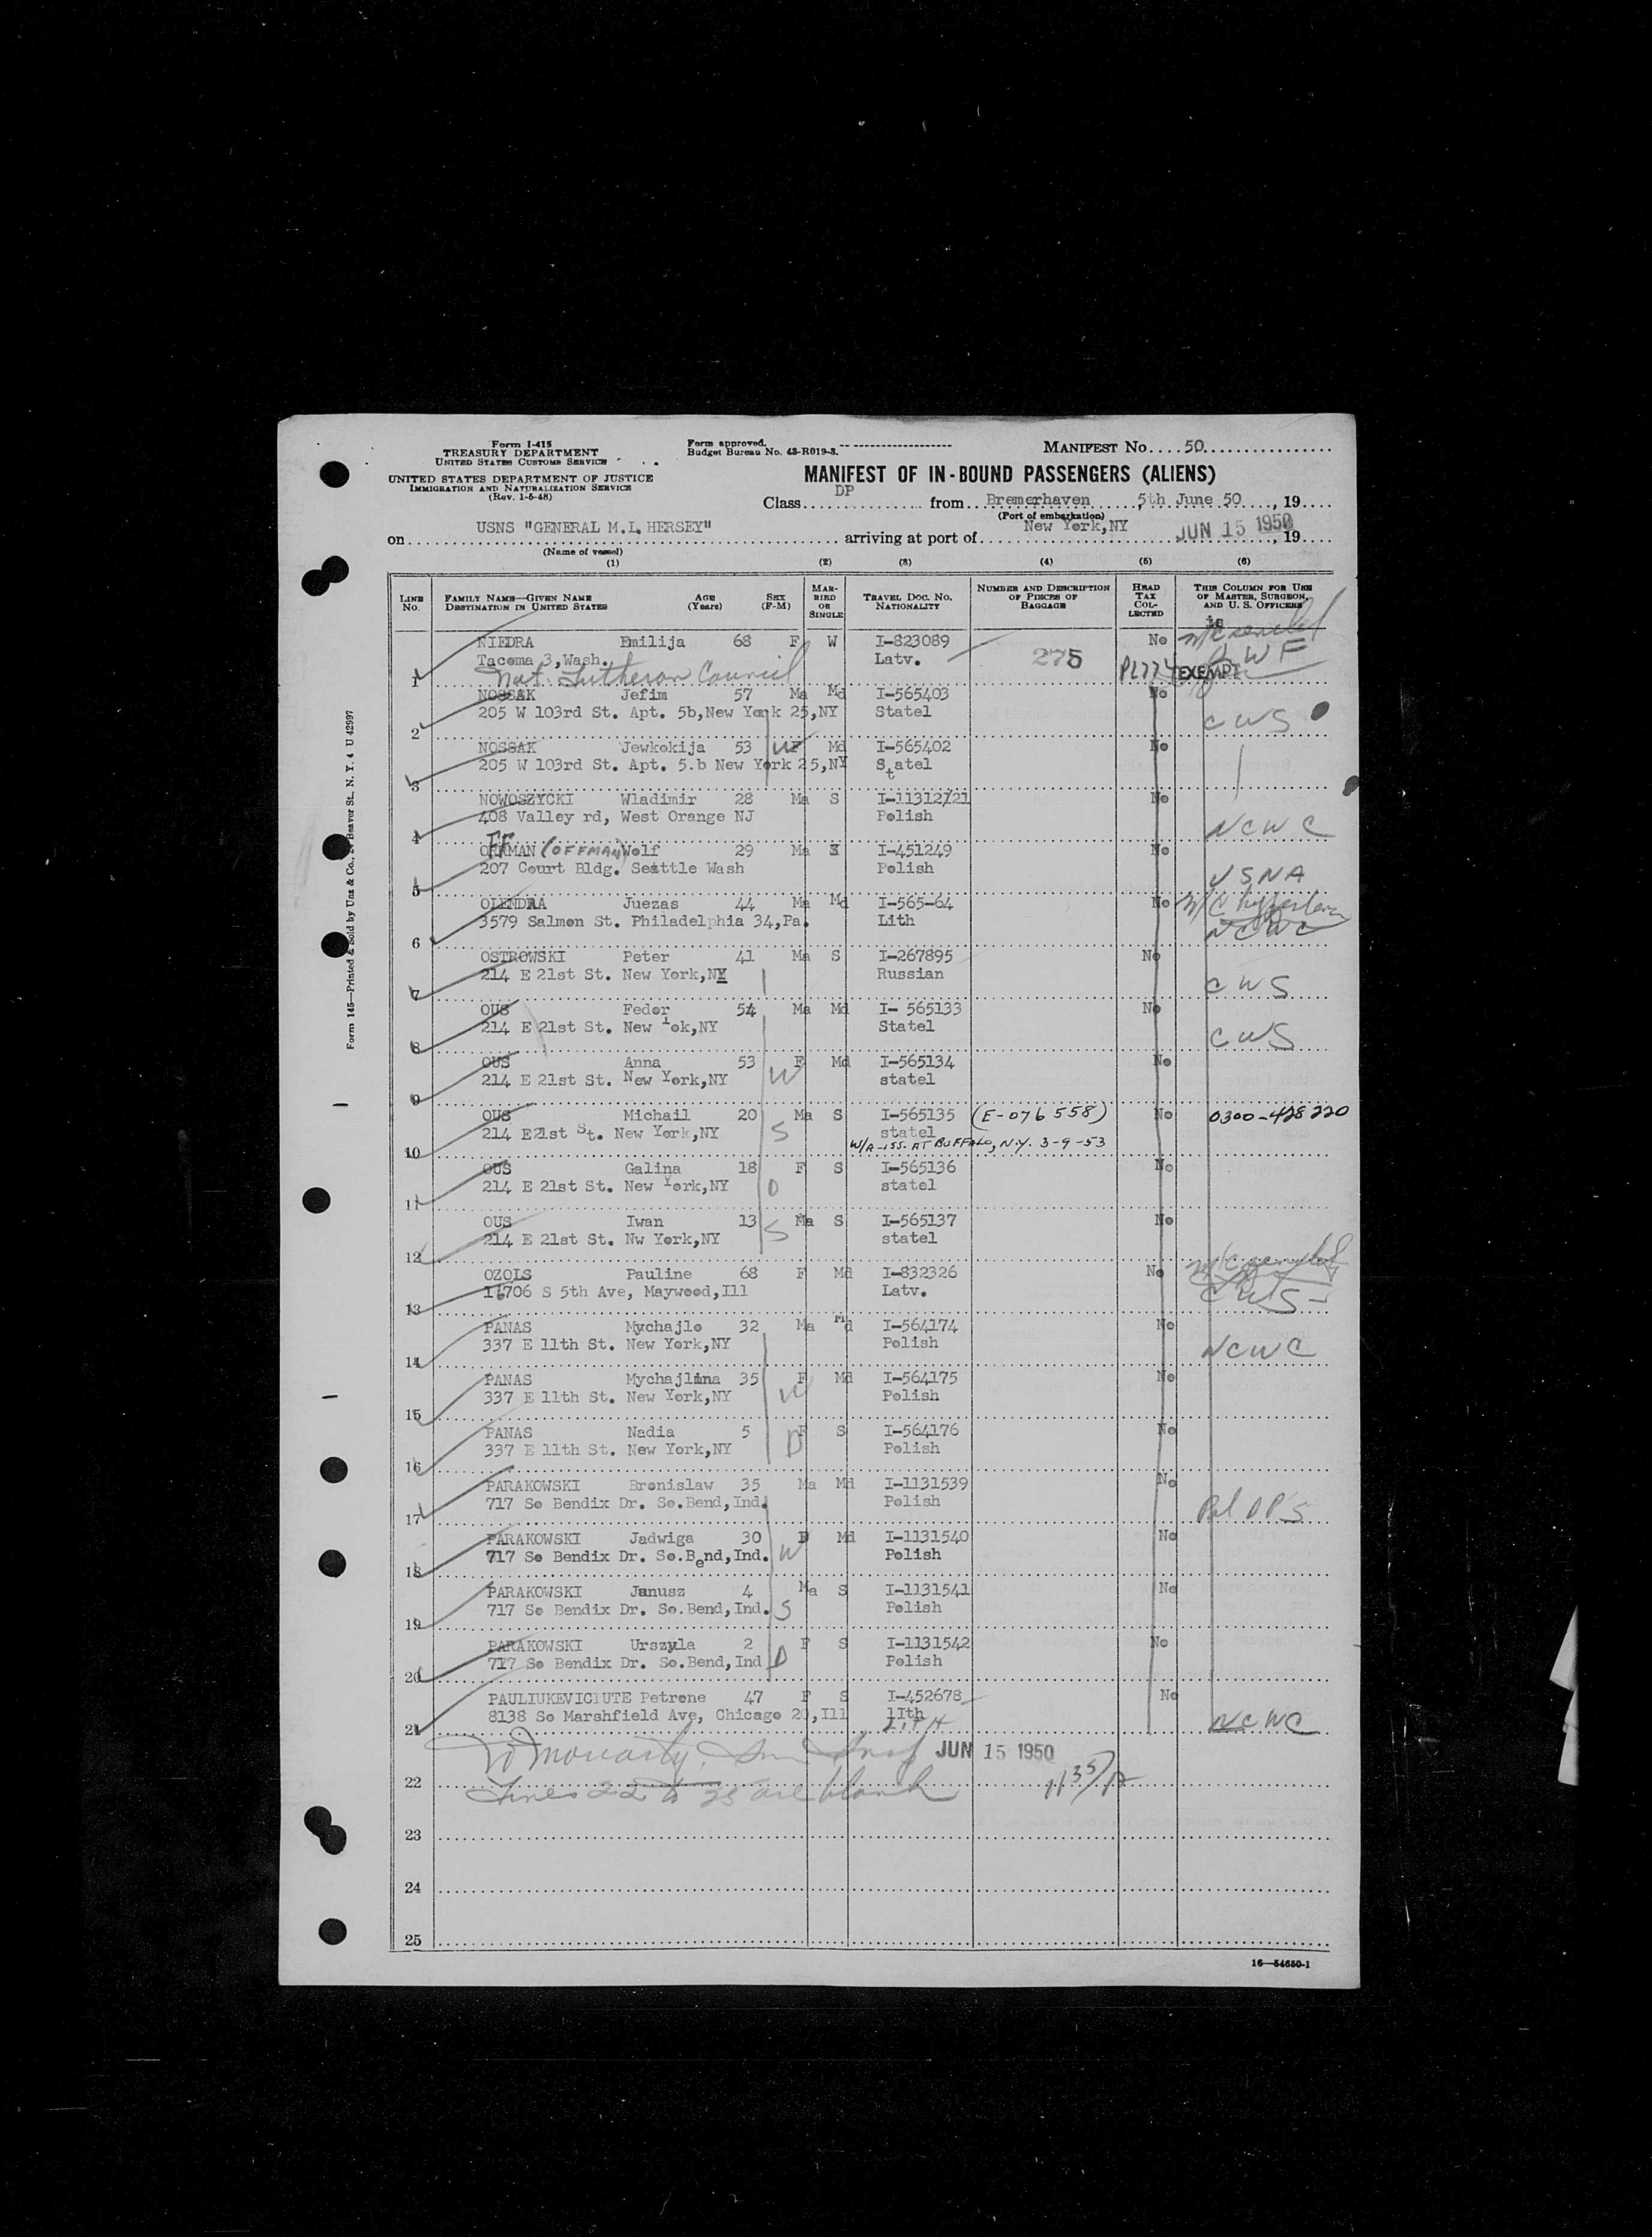 Form I-415
TREASURY DEPARTMENT
UNITED STATES CUSTOMS SERVICE
UNITED STATES DEPARTMENT OF JUSTICE
IMMIGRATION AND NATURALIZATION SERVICE
(Rev. 1-6-48)
Form approved.
Budget Bureau No. 43-R019-3.
MANIFEST No. 50
MANIFEST OF IN-BOUND PASSENGERS (ALIENS)
Class DP from Bremerhaven, 5th June 50, 19
(Port of embarkation)
on USNS "GENERAL M.L HERSEY" arriving at port of New York,NY JUN 15 1950, 19
(Name of vessel)
(1) (2) (3) (4) (5) (6)
LINE No. FAMILY NAME—GIVEN NAME DESTINATION IN UNITED STATES AGE (Years) SEX (F-M) MARRIED OR SINGLE TRAVEL DOC. NO. NATIONALITY NUMBER AND DESCRIPTION OF PIECES OF BAGGAGE HEAD TAX COLLECTED THIS COLUMN FOR USE OF MASTER, SURGEON, AND U. S. OFFICERS
NIEDRA Emilija 68 F W I-823089 No
Tacoma 3,Wash. Latv. 275 PL774 EXEMPT
1 Nat. Lutheran Council
NOSSAK Jefim 57 Ma Md I-565403 No
205 W 103rd St. Apt. 5b,New York 25,NY Statel CWS
2
NOSSAK Jewkokija 53 W F Md I-565402 No
205 W 103rd St. Apt. 5.b New York 25,NY Statel
3
NOWOSZYCKI Wladimir 28 Ma S I-11312121 No
408 Valley rd, West Orange NJ Polish NCWC
4
(OFFMAN) Wolf 29 Ma I-451249 No
207 Court Bldg. Seattle Wash Polish USNA
5
OLENDRA Juezas 44 Ma Md I-565-64 No
3579 Salmon St. Philadelphia 34,Pa. Lith NCWC
6
OSTROWSKI Peter 41 Ma S I-267895 No
214 E 21st St. New York,NY Russian CWS
7
OUS Fedor 54 Ma Md I- 565133 No
214 E 21st St. New Yok,NY Statel CWS
8
OUS Anna 53 F Md I-565134 No
214 E 21st St. New York,NY W statel
9
OUS Michail 20 Ma S I-565135 (E-076558) No 0300-428220
214 E21st St. New York,NY S statel
10 W/A-ISS. AT BUFFALO, N.Y. 3-9-53
OUS Galina 18 F S I-565136 No
214 E 21st St. New York,NY D statel
11
OUS Iwan 13 Ma S I-565137 No
214 E 21st St. Nw York,NY S statel
12
OZOLS Pauline 68 F Md I-832326 No
706 S 5th Ave, Maywood,Ill Latv. CWS
13
PANAS Mychajlo 32 Ma Md I-564174 No
337 E 11th St. New York,NY Polish NCWC
14
PANAS Mychajlina 35 F Md I-564175 No
337 E 11th St. New York,NY W Polish
15
PANAS Nadia 5 F S I-564176 No
337 E 11th St. New York,NY D Polish
16
PARAKOWSKI Bronislaw 35 Ma Md I-1131539 No
717 So Bendix Dr. So.Bend,Ind. Polish Pol DPS
17
PARAKOWSKI Jadwiga 30 F Md I-1131540 No
717 So Bendix Dr. So.Bend,Ind. W Polish
18
PARAKOWSKI Janusz 4 Ma S I-1131541 No
717 So Bendix Dr. So.Bend,Ind. S Polish
19
PARAKOWSKI Urszyla 2 F S I-1131542 No
717 So Bendix Dr. So.Bend,Ind D Polish
20
PAULIUKEVICIUTE Petrone 47 F S I-452678 No
8138 So Marshfield Ave, Chicago 20,Ill lIth NCWC
21 LITH
JUN 15 1950
22 Lines 22 to 25 are blank 1135/A
23
24
25
16—54650-1
Form 145—Printed & Sold by Unz & Co., Beaver St., N. Y. 4 U 42997